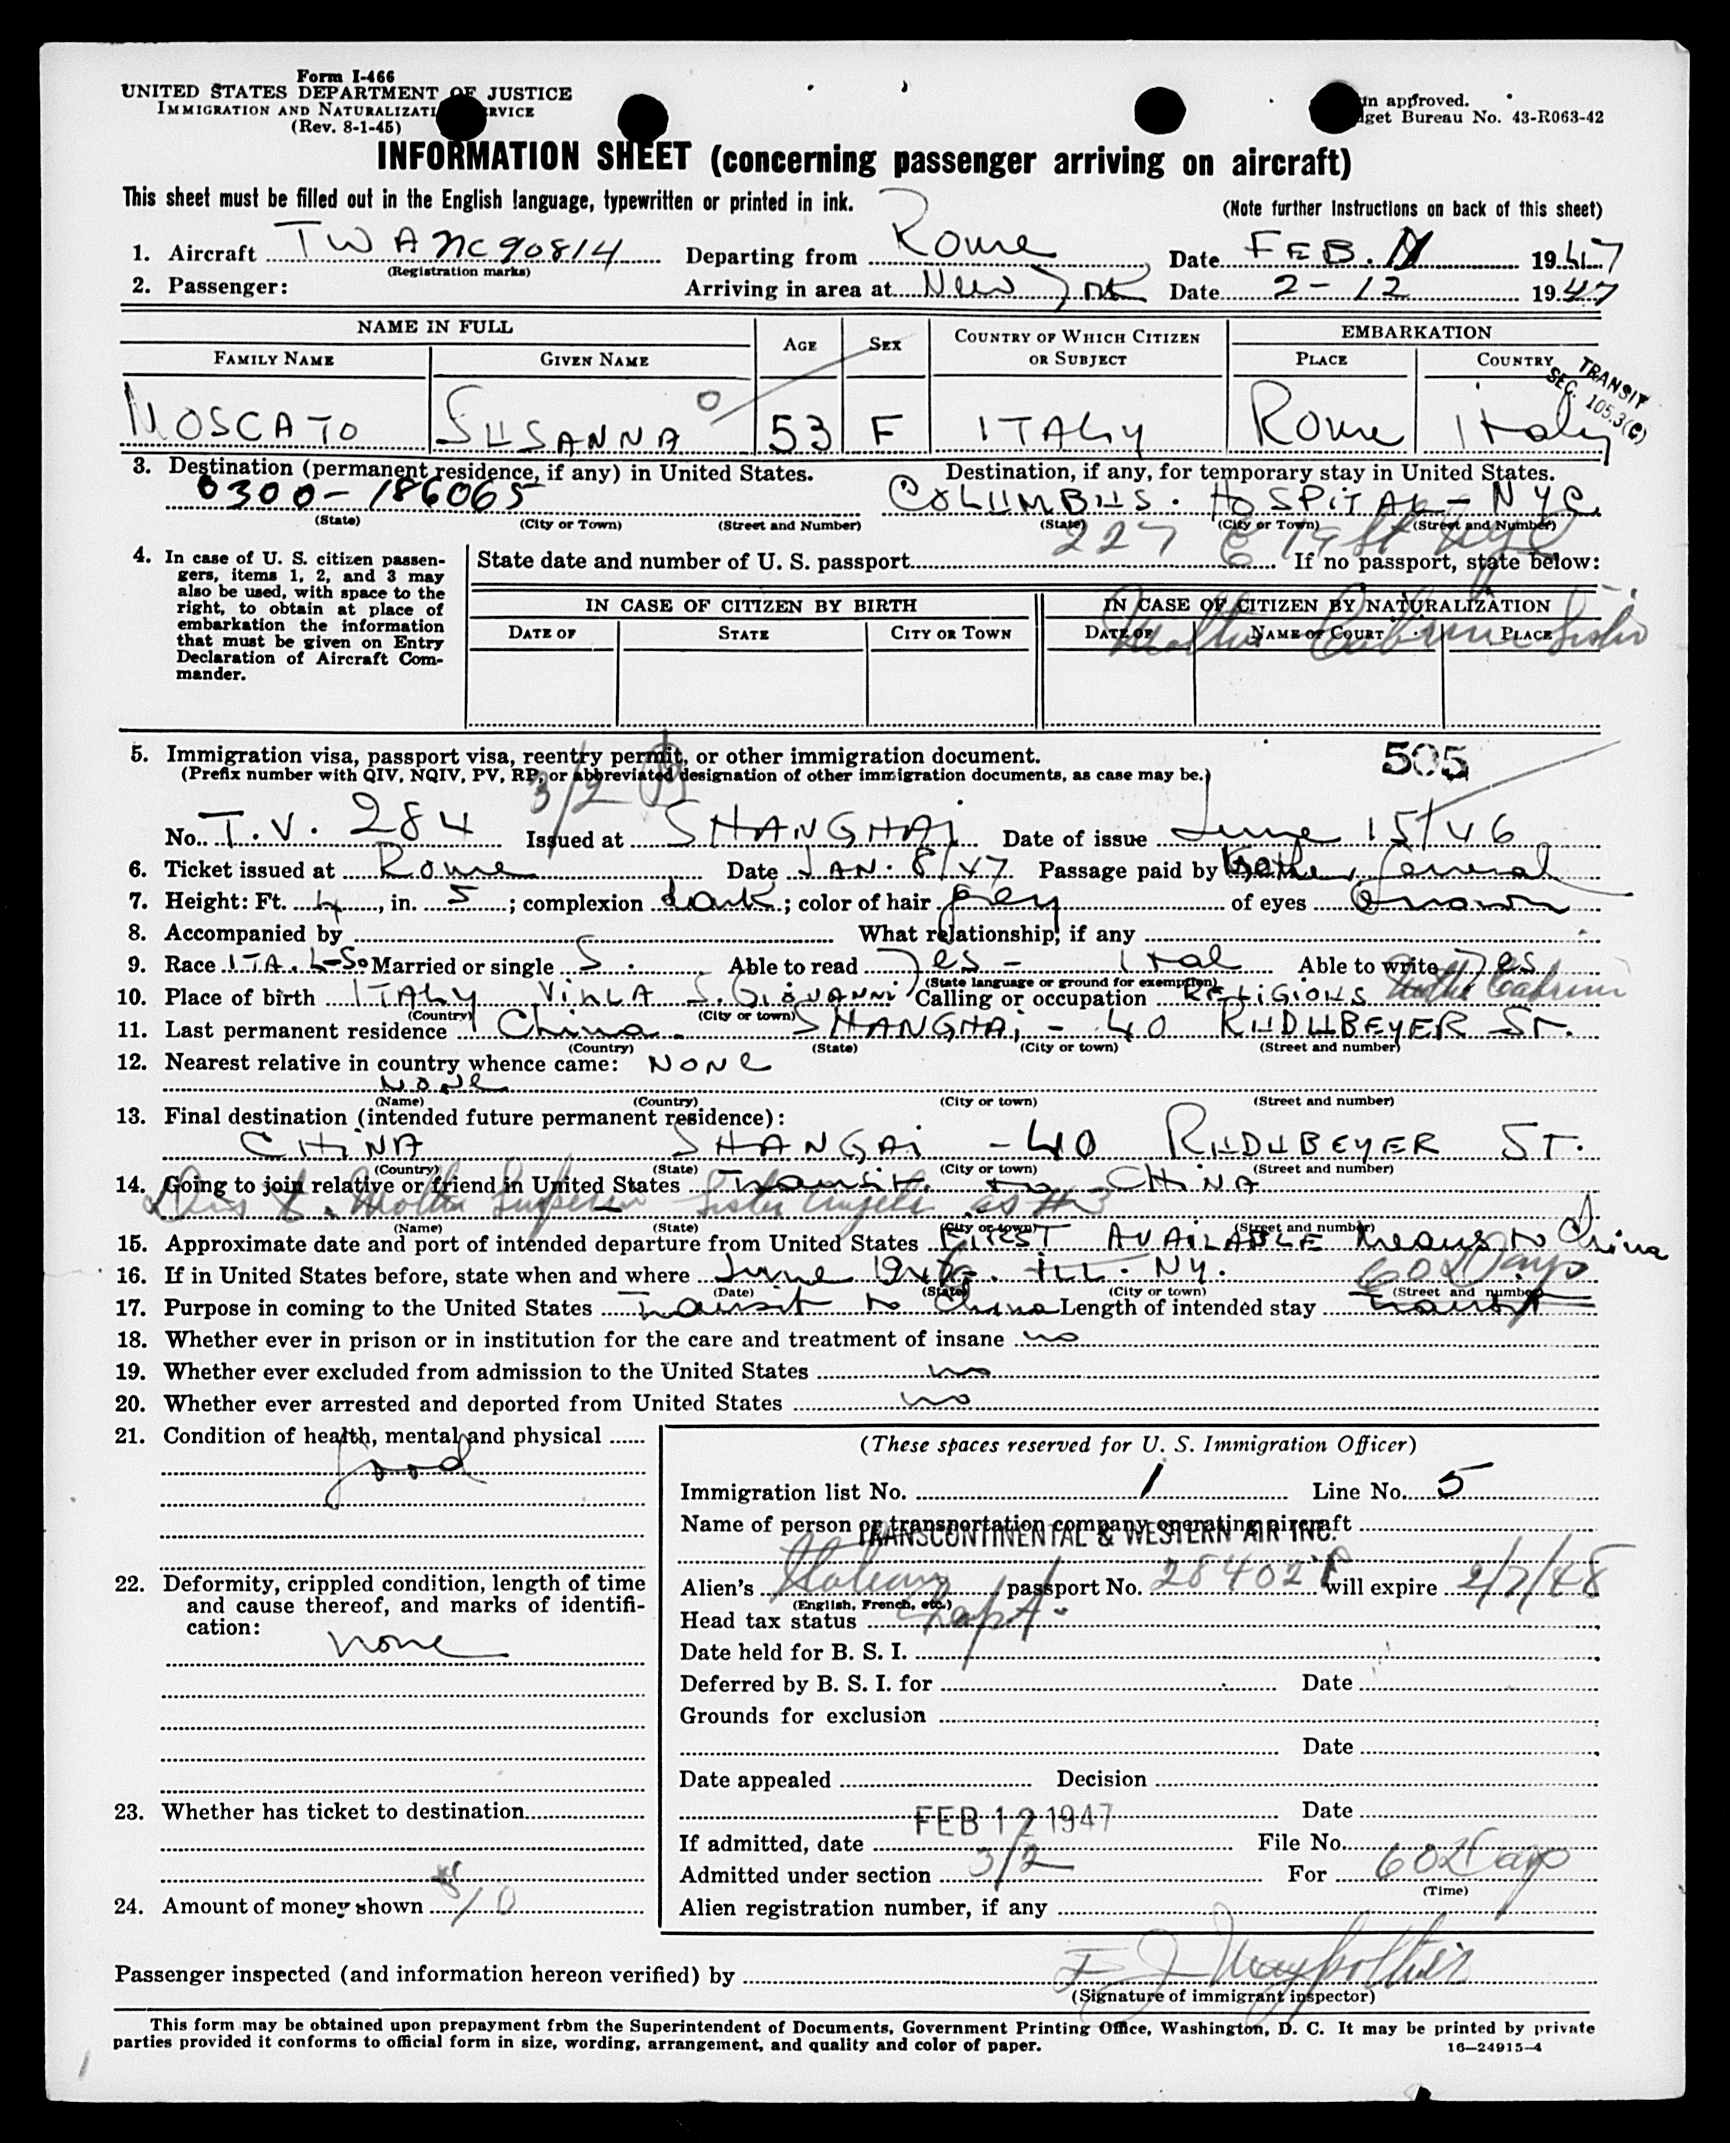 Form I-466
UNITED STATES DEPARTMENT OF JUSTICE
IMMIGRATION AND NATURALIZATI RVICE
(Rev. 8-1-45)
n approved.
get Bureau No. 43-R063-42
INFORMATION SHEET (concerning passenger arriving on aircraft)
This sheet must be filled out in the English language, typewritten or printed in ink.
(Note further instructions on back of this sheet)
1. Aircraft TWA NC90814 Departing from Rome Date FEB. 1947
(Registration marks)
2. Passenger: Arriving in area at New York Date 2-12 1947
NAME IN FULL AGE SEX COUNTRY OF WHICH CITIZEN OR SUBJECT EMBARKATION
FAMILY NAME GIVEN NAME PLACE COUNTRY
TRANSIT
SEC. 105.3(C)
MOSCATO SUSANNA 53 F ITALY Rome italy
3. Destination (permanent residence, if any) in United States. Destination, if any, for temporary stay in United States.
0300-186065 COLUMBUS. HOSPITAL - NYC
(State) (City or Town) (Street and Number) (State) (City or Town) (Street and Number)
227 E 19 St NYC
4. In case of U. S. citizen passengers, items 1, 2, and 3 may also be used, with space to the right, to obtain at place of embarkation the information that must be given on Entry Declaration of Aircraft Commander.
State date and number of U. S. passport If no passport, state below:
IN CASE OF CITIZEN BY BIRTH IN CASE OF CITIZEN BY NATURALIZATION
DATE OF STATE CITY OR TOWN DATE OF NAME OF COURT PLACE
Mother Cabrini Sister
5. Immigration visa, passport visa, reentry permit, or other immigration document. 505
(Prefix number with QIV, NQIV, PV, RP, or abbreviated designation of other immigration documents, as case may be.)
3/2
No. T.V. 284 Issued at SHANGHAI Date of issue June 15/46
6. Ticket issued at Rome Date JAN. 8/47 Passage paid by Mother General
7. Height: Ft. 4, in. 5; complexion dark; color of hair grey of eyes Brown
8. Accompanied by What relationship, if any
9. Race ITA. L-So Married or single S. Able to read yes - Ital Able to write yes
(State language or ground for exemption)
10. Place of birth ITALY VILLA S. GIOVANNI Calling or occupation RELIGIOUS Mother Cabrini
(Country) (City or town)
11. Last permanent residence China SHANGHAI - 40 RUDUBEYER ST.
(Country) (State) (City or town) (Street and number)
12. Nearest relative in country whence came: NONE
NONE
(Name) (Country) (City or town) (Street and number)
13. Final destination (intended future permanent residence):
CHINA SHANGAI - 40 RUDUBEYER ST.
(Country) (State) (City or town) (Street and number)
14. Going to join relative or friend in United States Transit to CHINA
Mother Superior Sister as #3
(Name) (State) (City or town) (Street and number)
15. Approximate date and port of intended departure from United States FIRST AVAILABLE Means to China
16. If in United States before, state when and where June 1946. ILL. NY. 60 Days
(Date) (State) (City or town) (Street and number)
17. Purpose in coming to the United States Transit to China Length of intended stay transit
18. Whether ever in prison or in institution for the care and treatment of insane no
19. Whether ever excluded from admission to the United States no
20. Whether ever arrested and deported from United States no
21. Condition of health, mental and physical
good
22. Deformity, crippled condition, length of time and cause thereof, and marks of identification:
none
23. Whether has ticket to destination
24. Amount of money shown $10
(These spaces reserved for U. S. Immigration Officer)
Immigration list No. 1 Line No. 5
Name of person or transportation company operating aircraft
TRANSCONTINENTAL & WESTERN AIR INC.
Alien's Italian passport No. 284028 will expire 2/7/48
(English, French, etc.)
Head tax status
Date held for B. S. I.
Deferred by B. S. I. for Date
Grounds for exclusion
Date
Date appealed Decision
Date
If admitted, date FEB 12 1947 File No.
Admitted under section 3/2 For 60 Days
(Time)
Alien registration number, if any
Passenger inspected (and information hereon verified) by
(Signature of immigrant inspector)
This form may be obtained upon prepayment from the Superintendent of Documents, Government Printing Office, Washington, D. C. It may be printed by private
parties provided it conforms to official form in size, wording, arrangement, and quality and color of paper.
16—24915-4